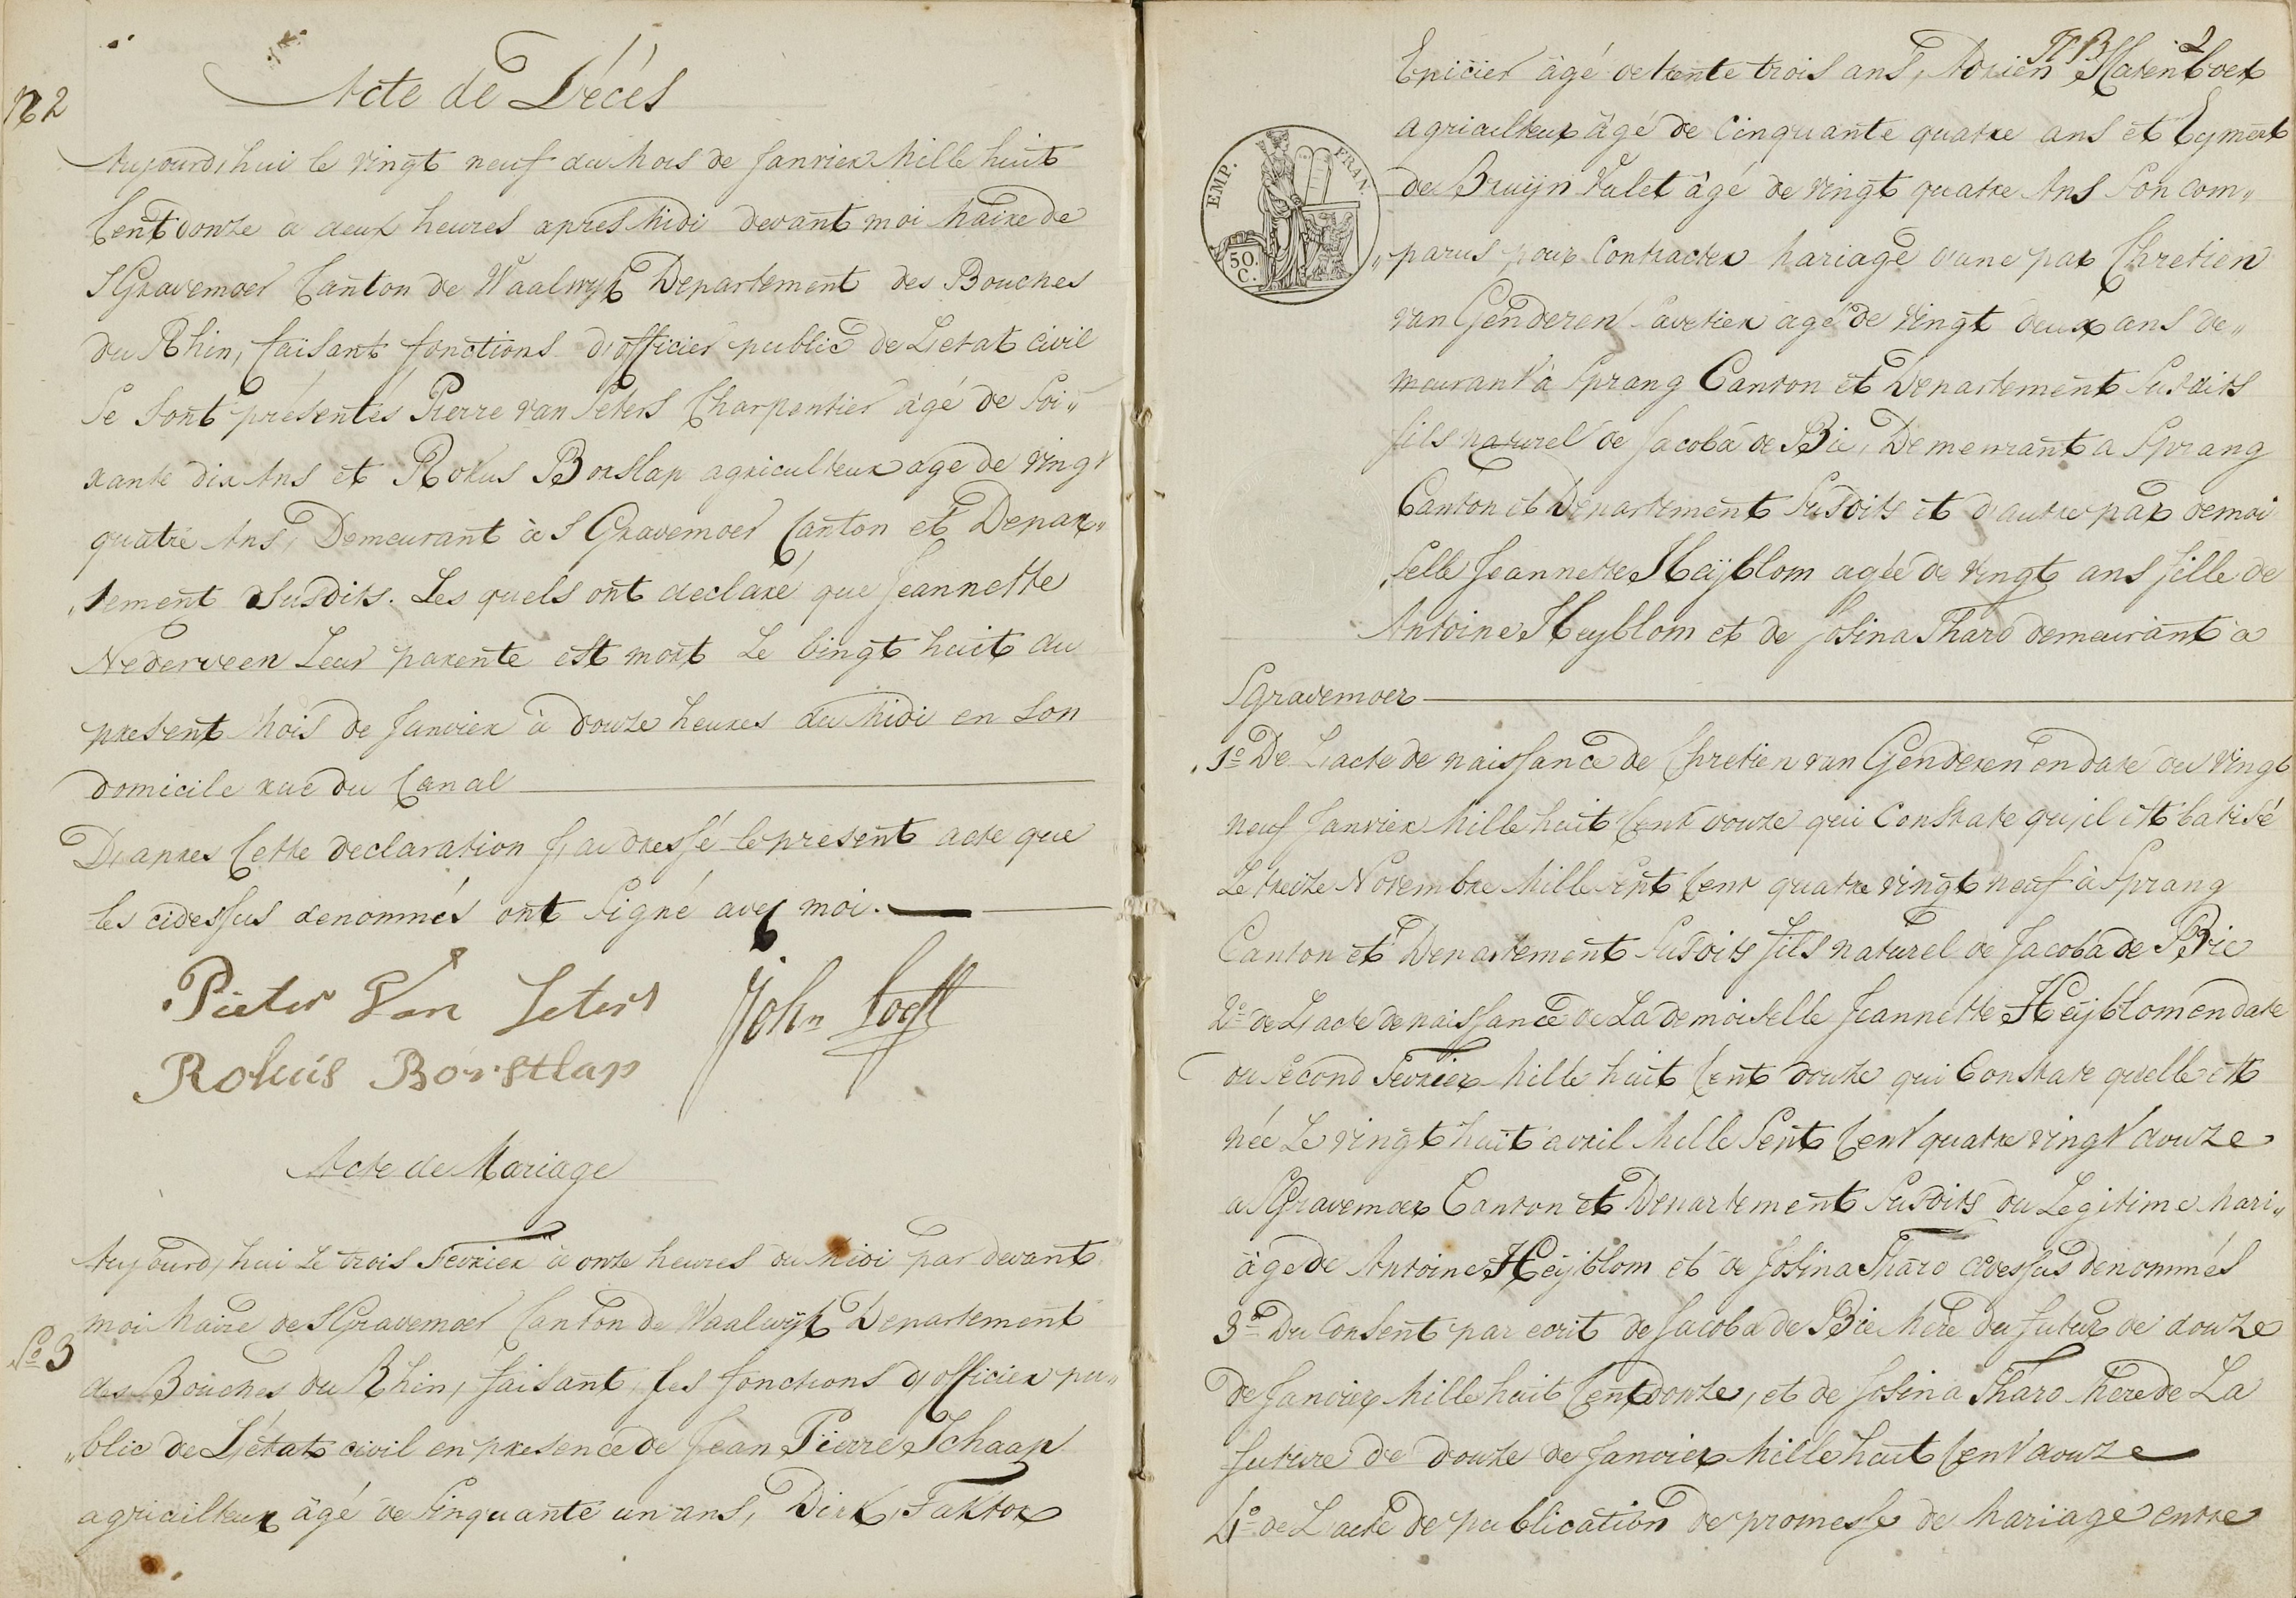 Acte de Décès
No 2
Aujourd,hui le vingt neuf du Mois de Janvier Mille huit
Cent douze a deux heures apres Midi devant moi Maire de
SGravemoer Canton de Waalwyk Departement des Bouches
du Rhin, faisant fonctions d,officier public de L,etat civil
Se Sont présentés Pierre van Seters Charpentier âgé de Soi„
xante dix Ans et Rokus Borstlap agriculteur age de vingt
quatre Ans, Demeurant à S Gravemoer Canton et Depar„
„tement Susdits. Les quels ont declaré que Jeannette
Nederveen Leur parente est mort Le vingt huit du
present Mois de Janvier à douze heures du Midi en Son
domicile rue du Canal
D,apres Cette declaration J,ai dressé le present acte que
les cidessus denommés ont Signé aveq moi.
Pieter Van Seters
John Loeff
Rokus Borstlap
Acte de Mariage
Aujourd,hui Le trois Fevrier à onze heures du Midi par devant
moi Maire de SGravemoer Canton de Waalwijk Departement
No 3
des Bouches du Rhin, faisant les fonctions d,officier pu„
„blic de L,état civil en presence de Jean Pierre Schaap
agriculteur âgé de Cinquante un ans, Dirk Faktor
2
Epicier âgé de trente trois ans, Adrien Haren
agriculteur âgé de Cinquante quatre ans et Eymert
EMP. FRAN.
50. C.
de Bruijn Valet âgé de vingt quatre Ans Son com„
„parus pour Contracter Mariage d'une par Chretien
van Genderen Savetier agé de vingt deux ans de„
meurant à Sprang Canton et Departement Susdits
fils naturel de Jacoba de Bie, Demeurant a Sprang
Canton et Departement Susdits et d'autre par demoi
„selle Jeannette Heijblom agée de vingt ans fille de
Antoine Heyblom et de Josina Tharo demeurant a
Sgravemoer
1o De L,acte de naissance de Chretien van Genderen en date du vingt
neuf Janvier Mille huit Cent douze qui Constate qu,il est batisé
Le treize Novembre Mille Sept Cent quatre vingt neuf à Sprang
Canton et Departement Susdits fils naturel de Jacoba de Bie
2o de L,acte de naissance de La demoiselle Jeannette Heijblom en date
du Second Fevrier Mille huit Cent douze qui Constate quelle est
née Le vingt huit avril Mille Sept Cent quatre vingt douze
a SGravemoer Canton et Departement Susdits du Legitime Mari„
âge de Antoine Heijblom et de Josina Tharo cidessus denommés
3o Du Consent par ecrit de Jacoba de Bie Mere du futur de douze
de Janvier Mille huit Cent douze, et de Josina Tharo Mere de La
future de douze de Janvier Mille huit Cent douze
4o de L,acte de publication de promesse de Mariage entre